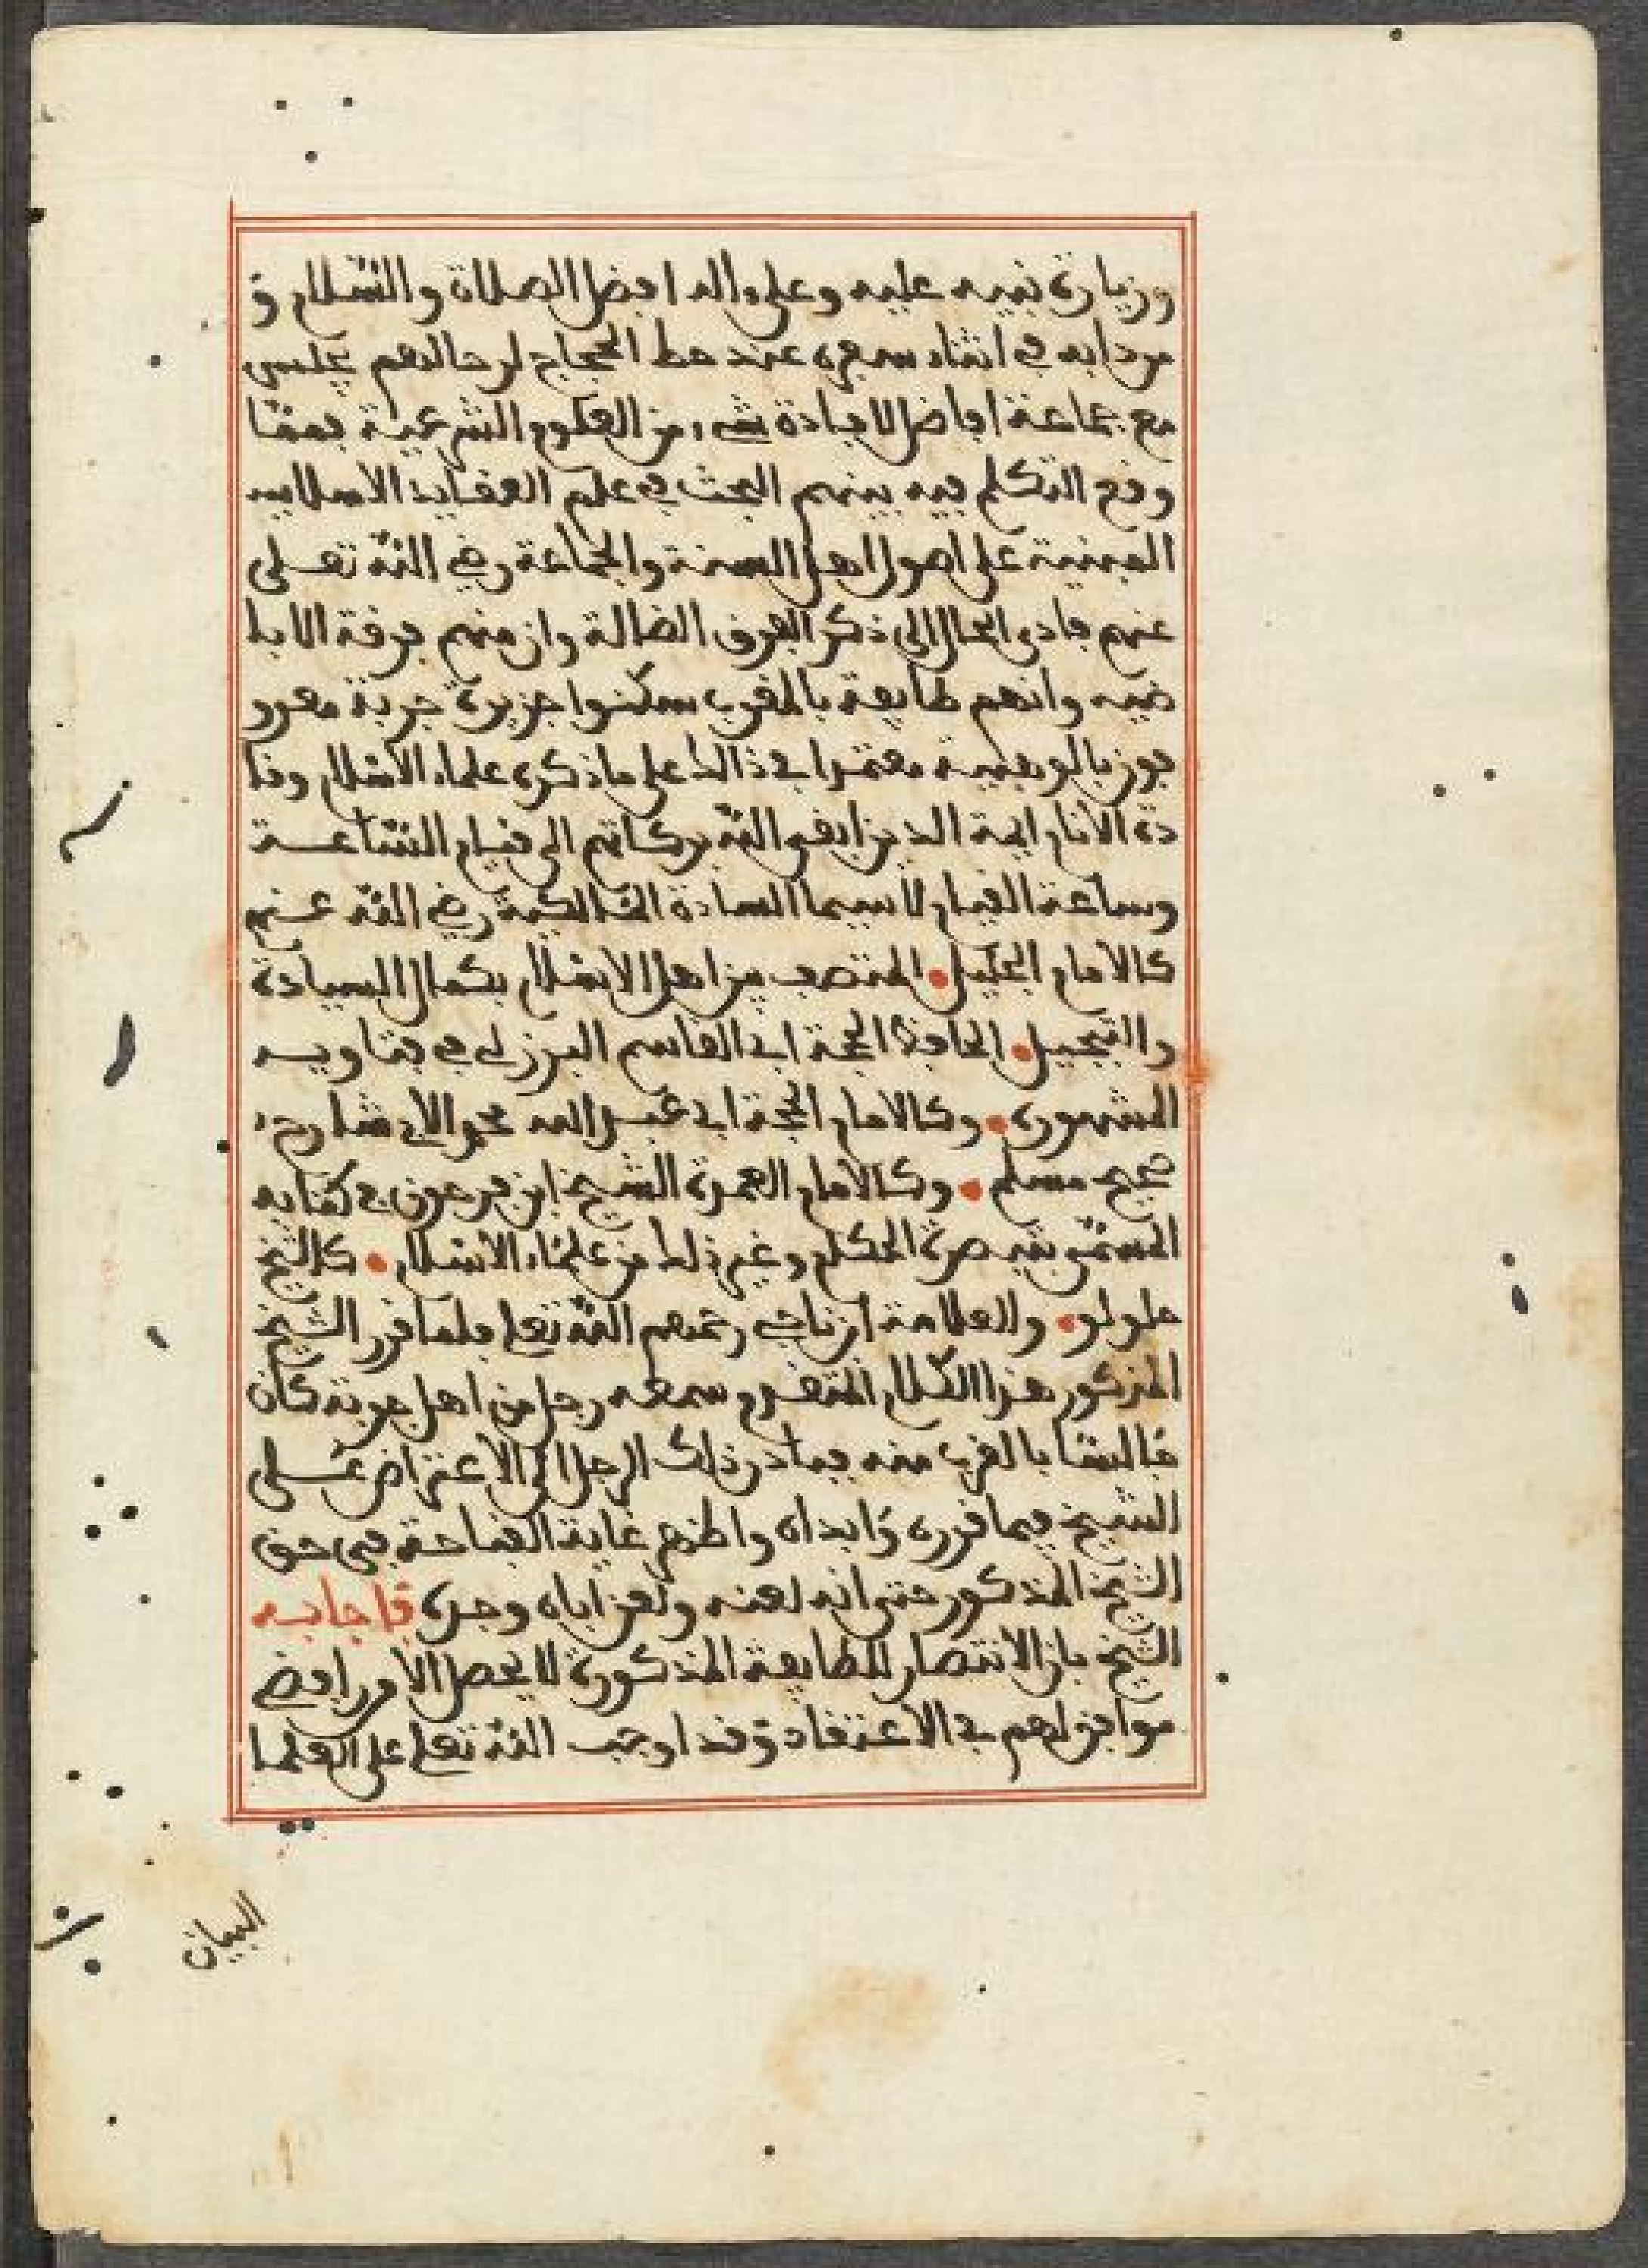 وزيارة نبيه عليه وعلى ءاله افضل الصلاة والسلام و
من دابه في اثناء سفره عند حط الحجاج لرحالهم يجلس
مع جماعة افاضل لافادة شيء من العلوم الشرعية فممّا
وقع التكلم فيه بينهم البحث في علم العقايد الاسلاميه
المبنية على اصول اهل السنة والجماعة رضي الله تعلى
عنهم فادى الحال الى ذكر الفرق الضالة وان منهم فرقة الابا
ضيه وانهم طايفة بالمغرب سكنوا جزيرة جربة معرو
فون بالوهبية معتمدا في ذالك على ما ذكره علماء الاسلام وقا
دة الانام ايمة الدين ابقى الله بركاتهم الى قيام الساعة
وساعة القيام لا سيما السادة المالكية رضي الله عنهم
كالامام الجليل • المنتصب من اهل الاسلام بكمال السيادة
والتبجيل • الحافظ الحجة ابي القاسم البرزلي في فتاويه
المشهورة • وكالامام الحجة ابي عبد الله محمد الابي شارح
صحيح مسلم • وكالامام العمدة الشيخ ابن فرحون في كتابه
المسمّى بتبصرة الحكام وغير ذلك من علماء الاسلام • كالشيخ
حلولو • والعلامة ابن ناجي رحمهم الله تعلى فلما قرر الشيخ
المذكور هذا الكلام المتقدم سمعه رجل من اهل جربة كان
جالسا بالقرب منه فبادر ذلك الرجل الى الاعتراض على
الشيخ فيما قرره وابداه واظهر غاية القباحة في حق
الشيخ المذكور حتى انه لعنه ولعن اباه وجده فاجابه
الشيخ بان الانتصار للطايفة المذكورة لا يحصل الا من رافضي
موافق لهم في الاعتقاد وقد اوجب الله تعلى على العلما
البيان